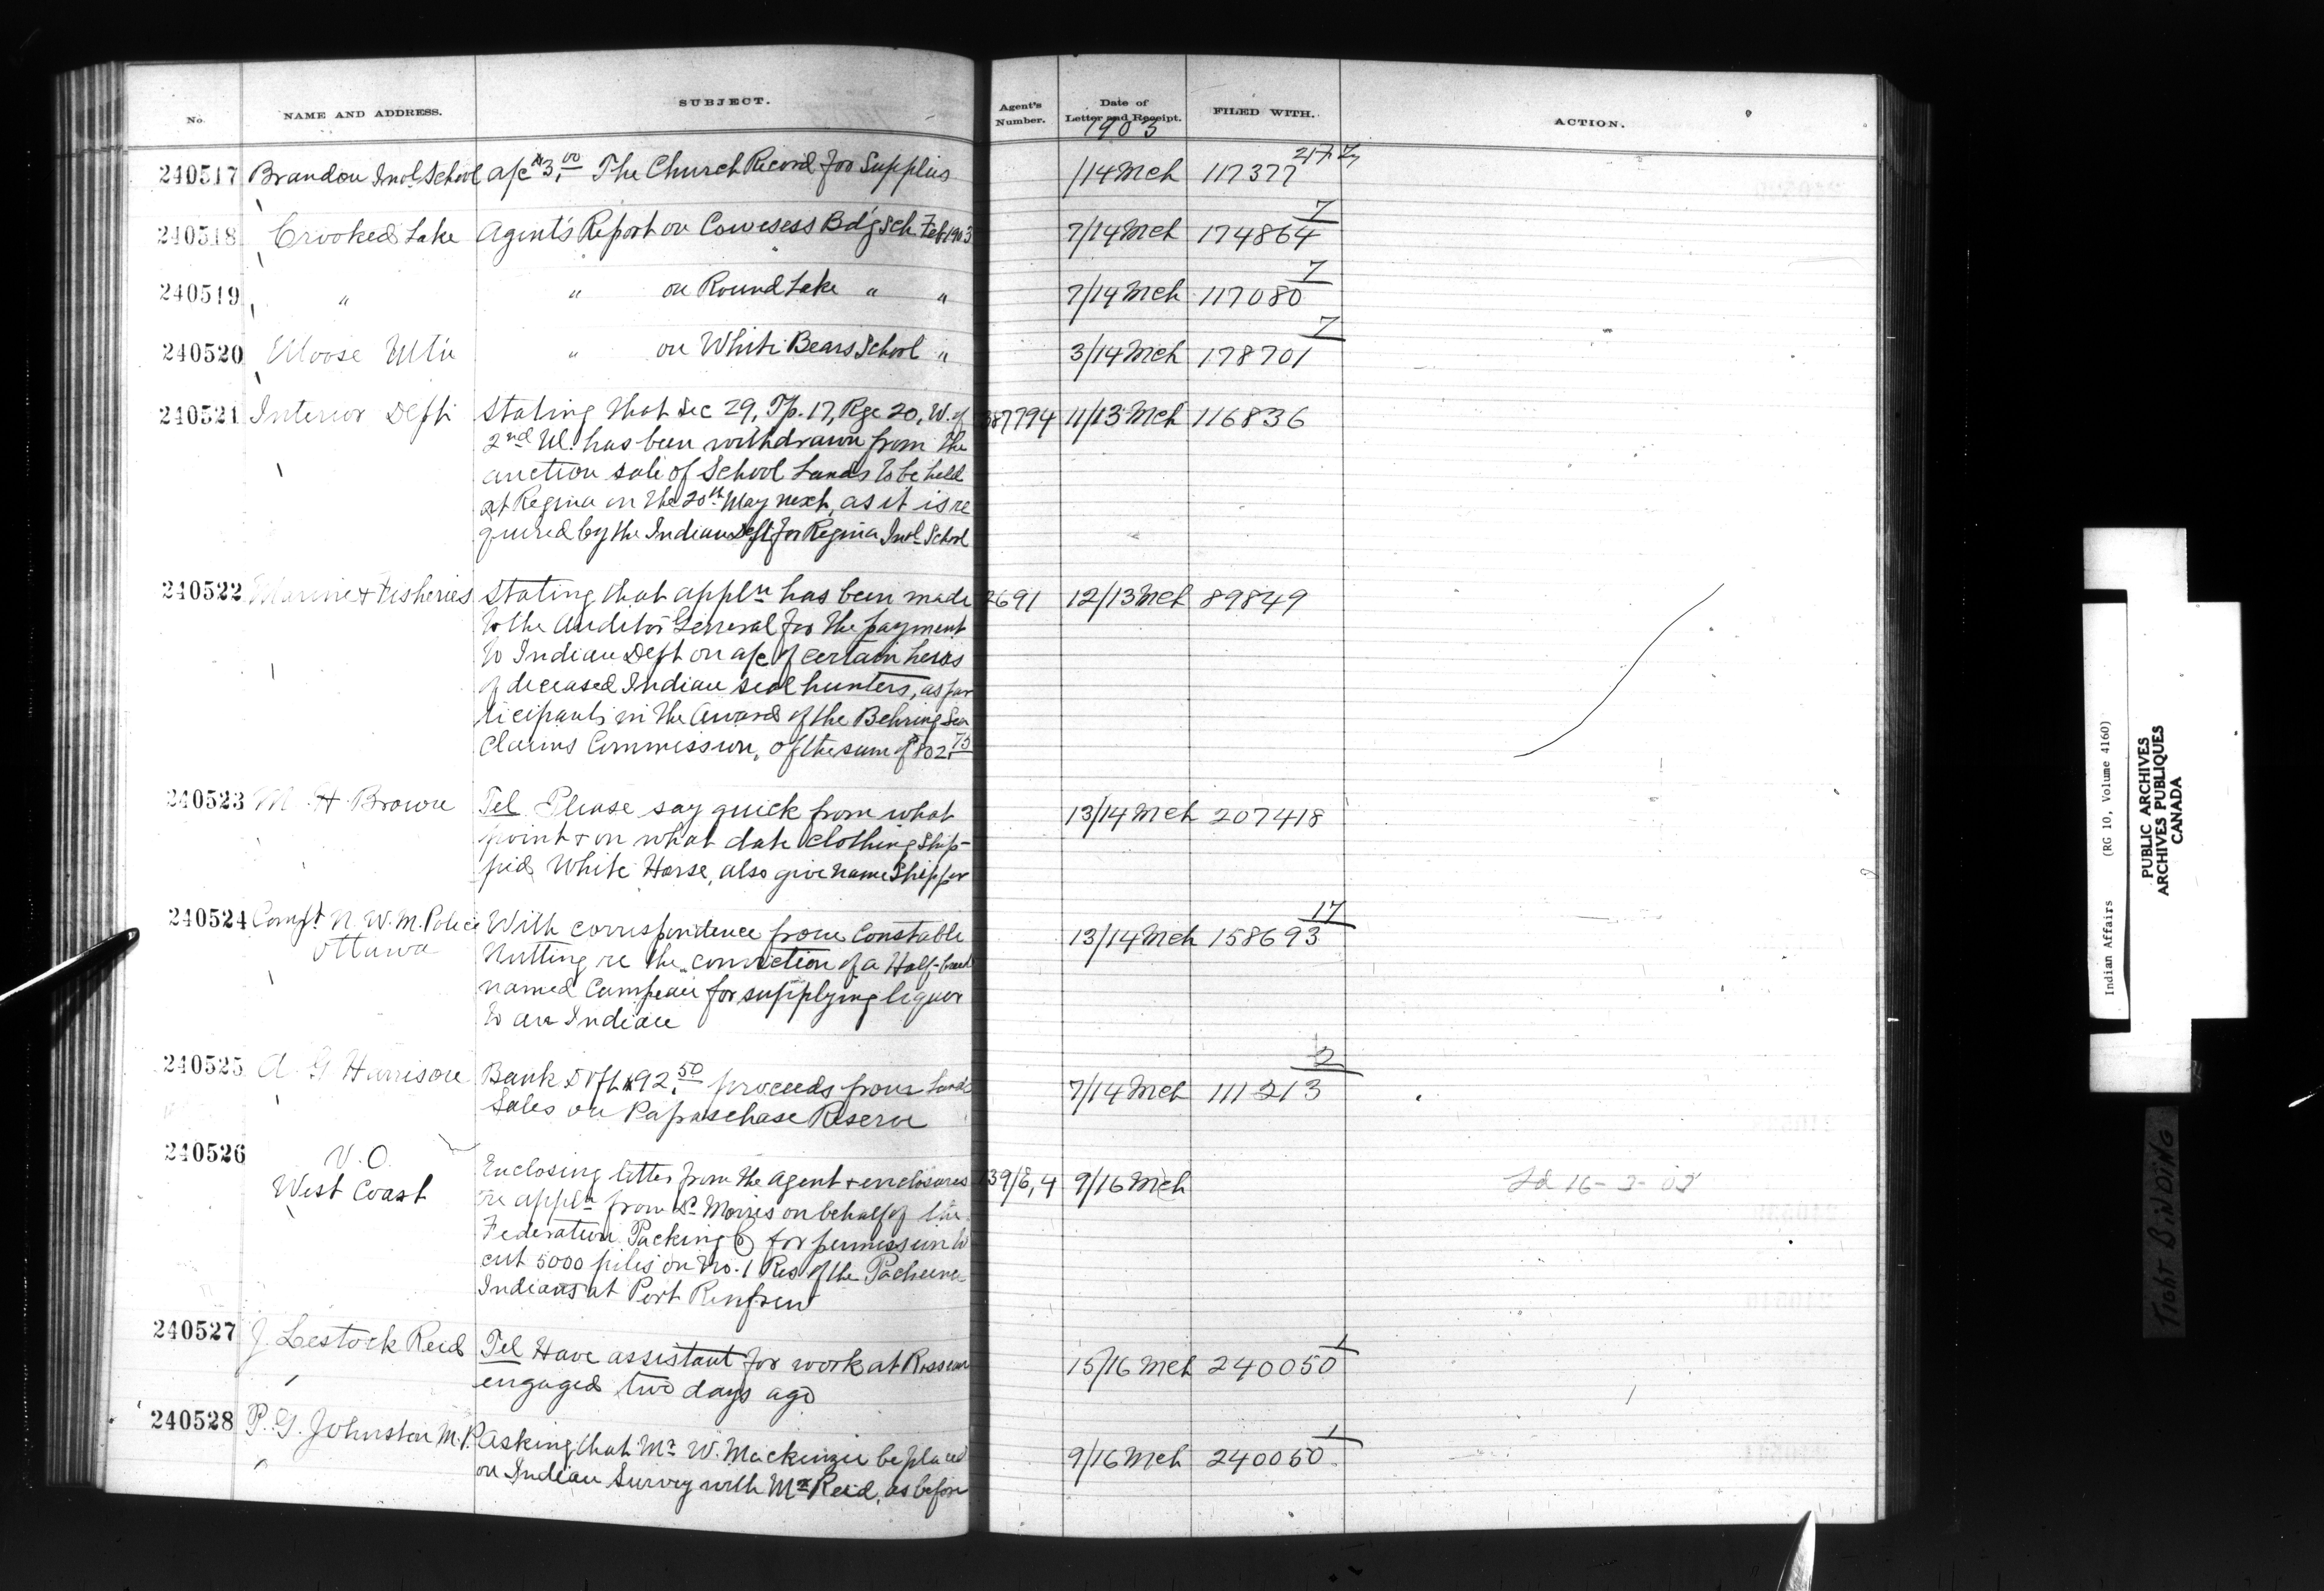 No. NAME AND ADDRESS. SUBJECT. Agent's Number. Date of Letter and Receipt. FILED WITH. ACTION.
1903
240517 Brandon Indl School a/c $3.00 The Church Record for Supplies /14 Mch 117377
240518 Crooked Lake Agent's Report on Cowesess Bd'g Sch Feb 1903 7/14 Mch 174864 7
240519 " " on Round Lake " " 7/14 Mch 117080 7
240520 Moose Mtn " on White Bears School " 3/14 Mch 178701 7
240521 Interior Dept Stating that Sec 29, Tp. 17, Rge 20, W. of 387794 11/13 Mch 116836
2nd M. has been withdrawn from the
auction sale of School Lands to be held
at Regina on the 20th May next, as it is re
quired by the Indian Dept for Regina Indl School
240522 Marine & Fisheries Stating that appln has been made 2691 12/13 Mch 89849
to the Auditor General for the payment
to Indian Dept on a/c of certain heirs
of deceased Indian seal hunters, as par
ticipants in the Award of the Behring Sea
Claims Commission, of the sum of $802.75
240523 M. H. Brown Tel Please say quick from what 13/14 Mch 207418
point & on what date clothing ship-
ped White Horse, also give name Shipper
240524 Compt N. W. M. Police With correspondence from Constable 13/14 Mch 158693 17
Ottawa Nutting re the conviction of a Half-breed
named Campeau for supplying liquor
to an Indian
240525 A. G Harrison Bank Dft $92.50 proceeds from Land 7/14 Mch 111213 2
Sales on Papaschase Reserve
240526 V. O. Enclosing letter from the Agent & enclosures 139/8,4 9/16 Mch Ld 16-3-03
West Coast re appln from P. Morris on behalf of the
Federation Packing Co for permission to
cut 5000 piles on No. 1 Res of the Pacheena
Indians at Port Renfrew
240527 J. Lestock Reid Tel Have assistant for work at Rosseau 15/16 Mch 240050 1
engaged two days ago
240528 P. G. Johnston M.P. Asking that Mr W. Mackenzie be placed 9/16 Mch 240050 1
on Indian Survey with Mr Reid, as before
Indian Affairs (RG 10, Volume 4160)
PUBLIC ARCHIVES
ARCHIVES PUBLIQUES
CANADA
TIGHT BINDING